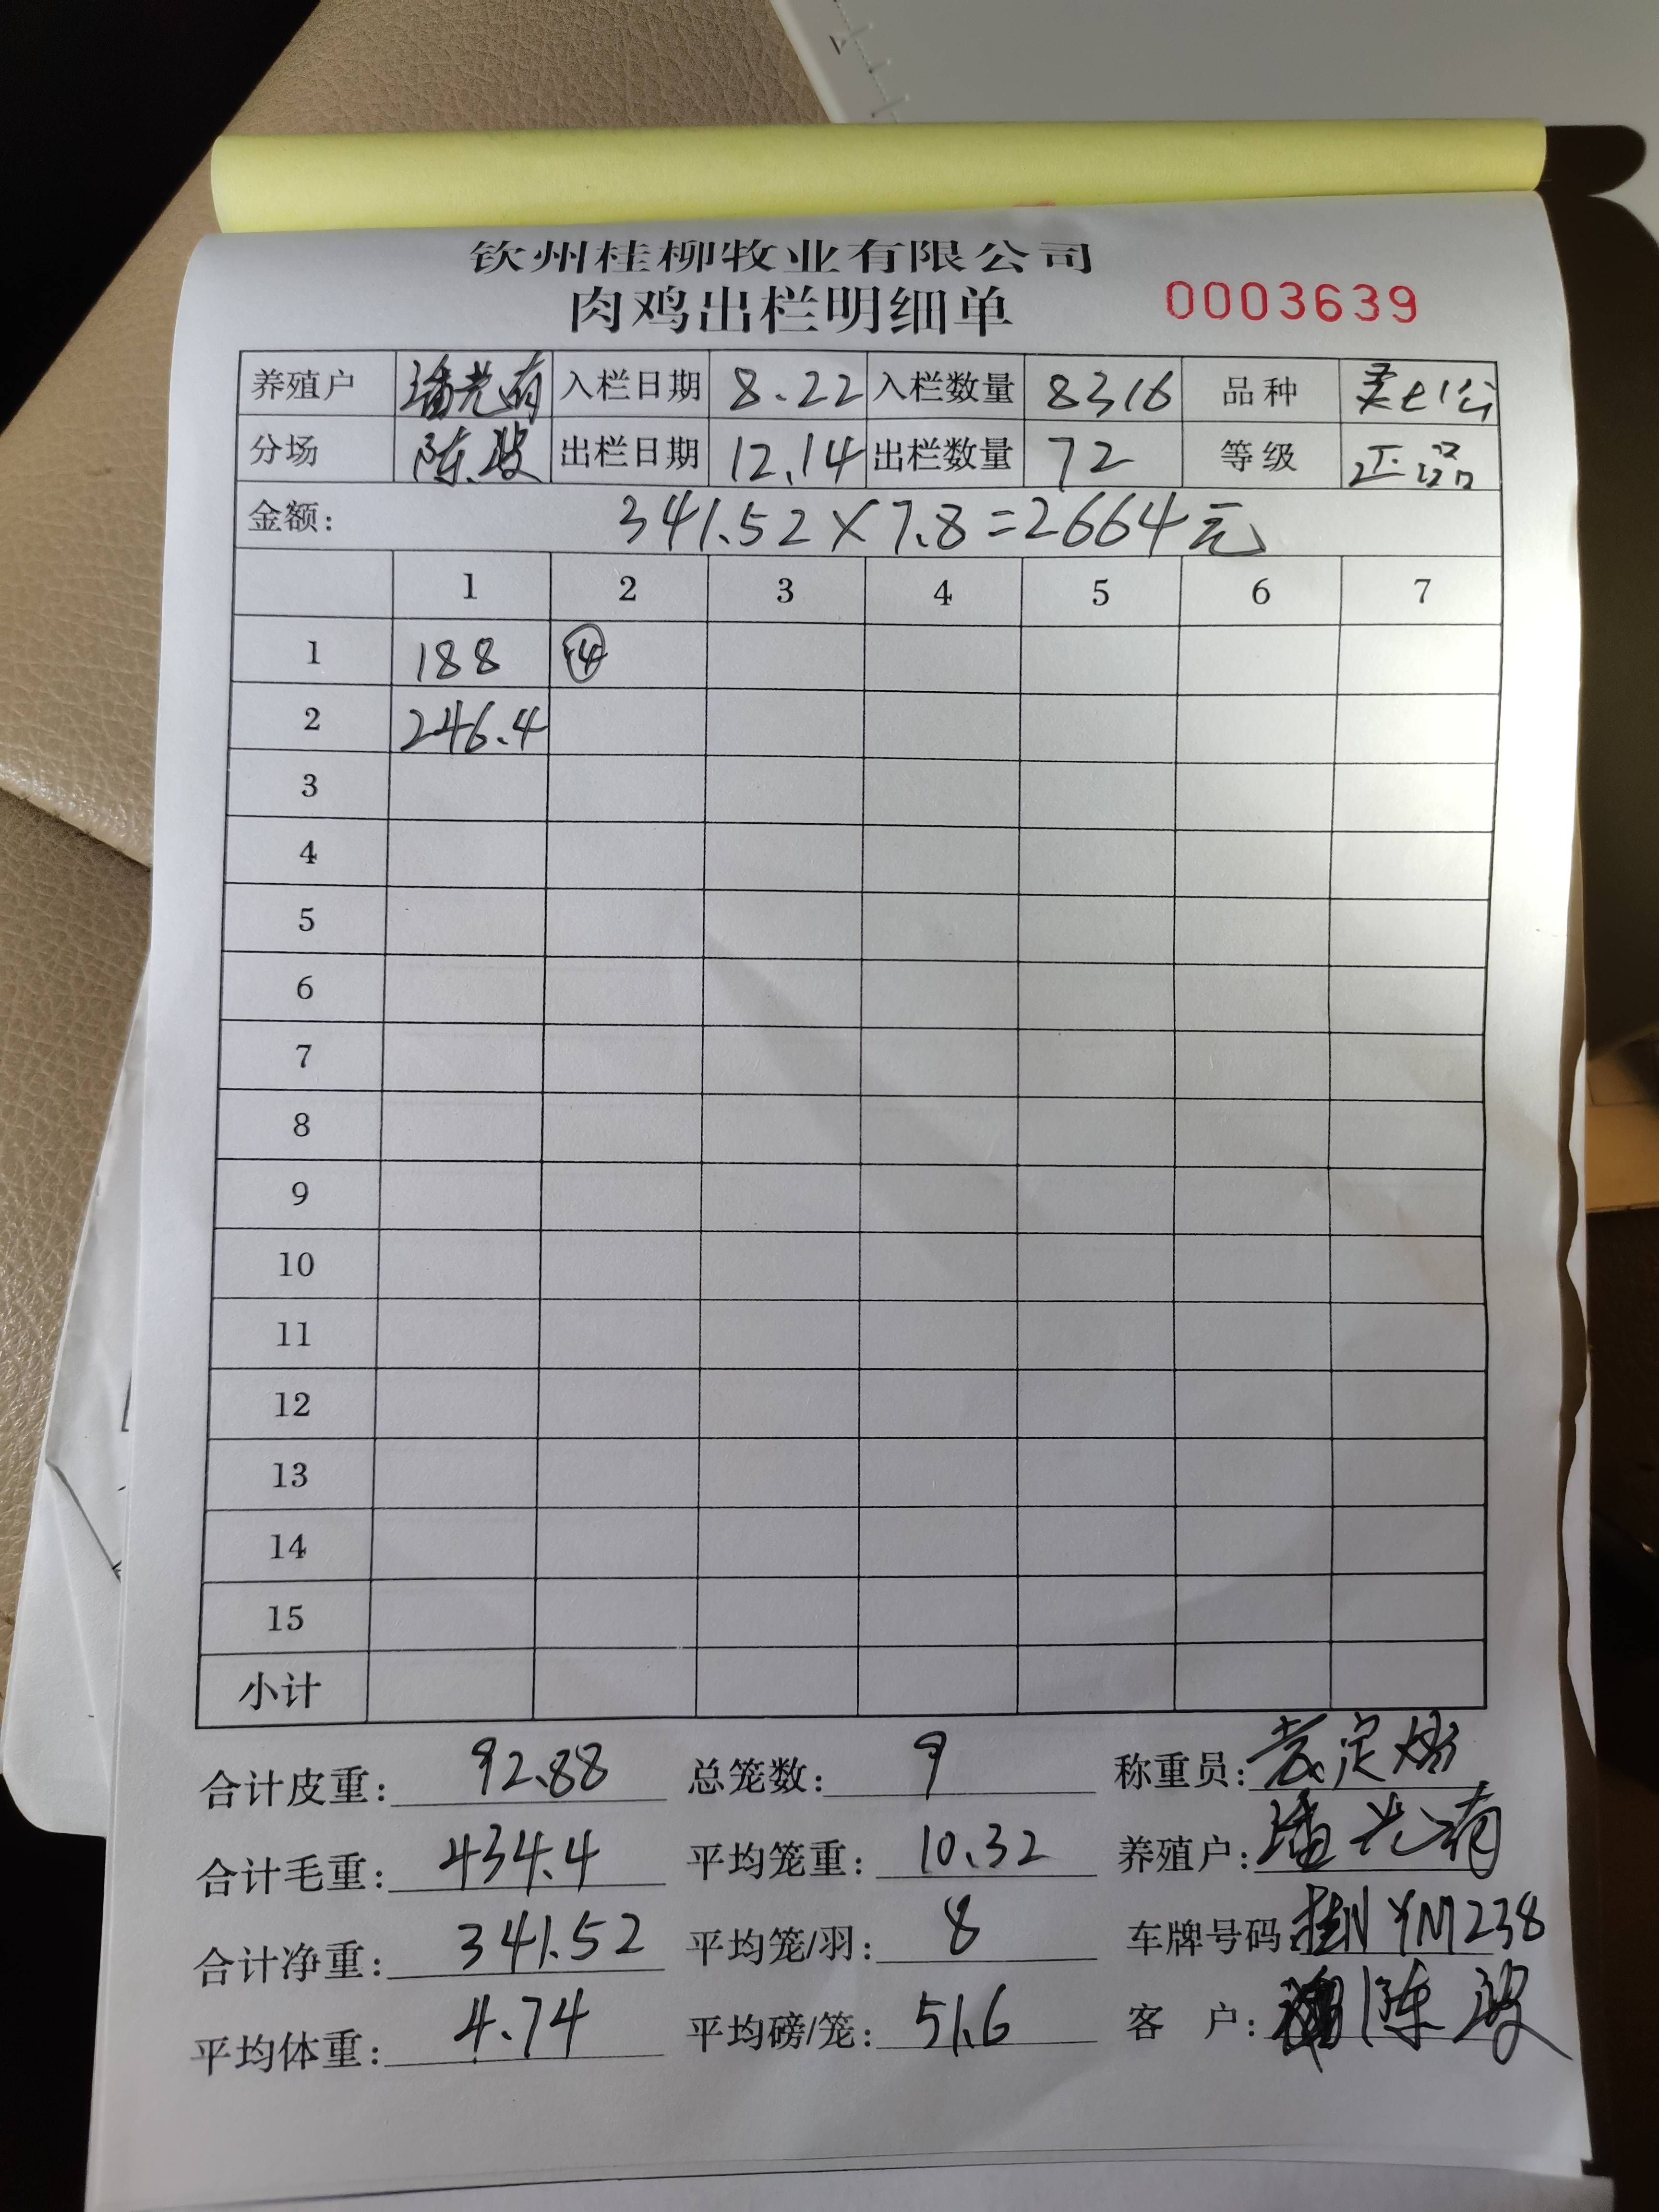 钦州桂柳牧业有限公司
肉鸡出栏明细单 0003639
养殖户 潘光南 入栏日期 8.22 入栏数量 8316 品种
分场 陈波 出栏日期 12.14 出栏数量 72 等级 正品
金额: 341.52×7.8=2664元
1 2 3 4 5 6 7
1 188 ④
2 246.4
3
4
5
6
7
8
9
10
11
12
13
14
15
小计
合计皮重: 92.88 总笼数: 9 称重员:
合计毛重: 434.4 平均笼重: 10.32 养殖户: 潘光南
合计净重: 341.52 平均笼/羽: 8 车牌号码: 桂N YM238
平均体重: 4.74 平均磅/笼: 51.6 客户: 陈波